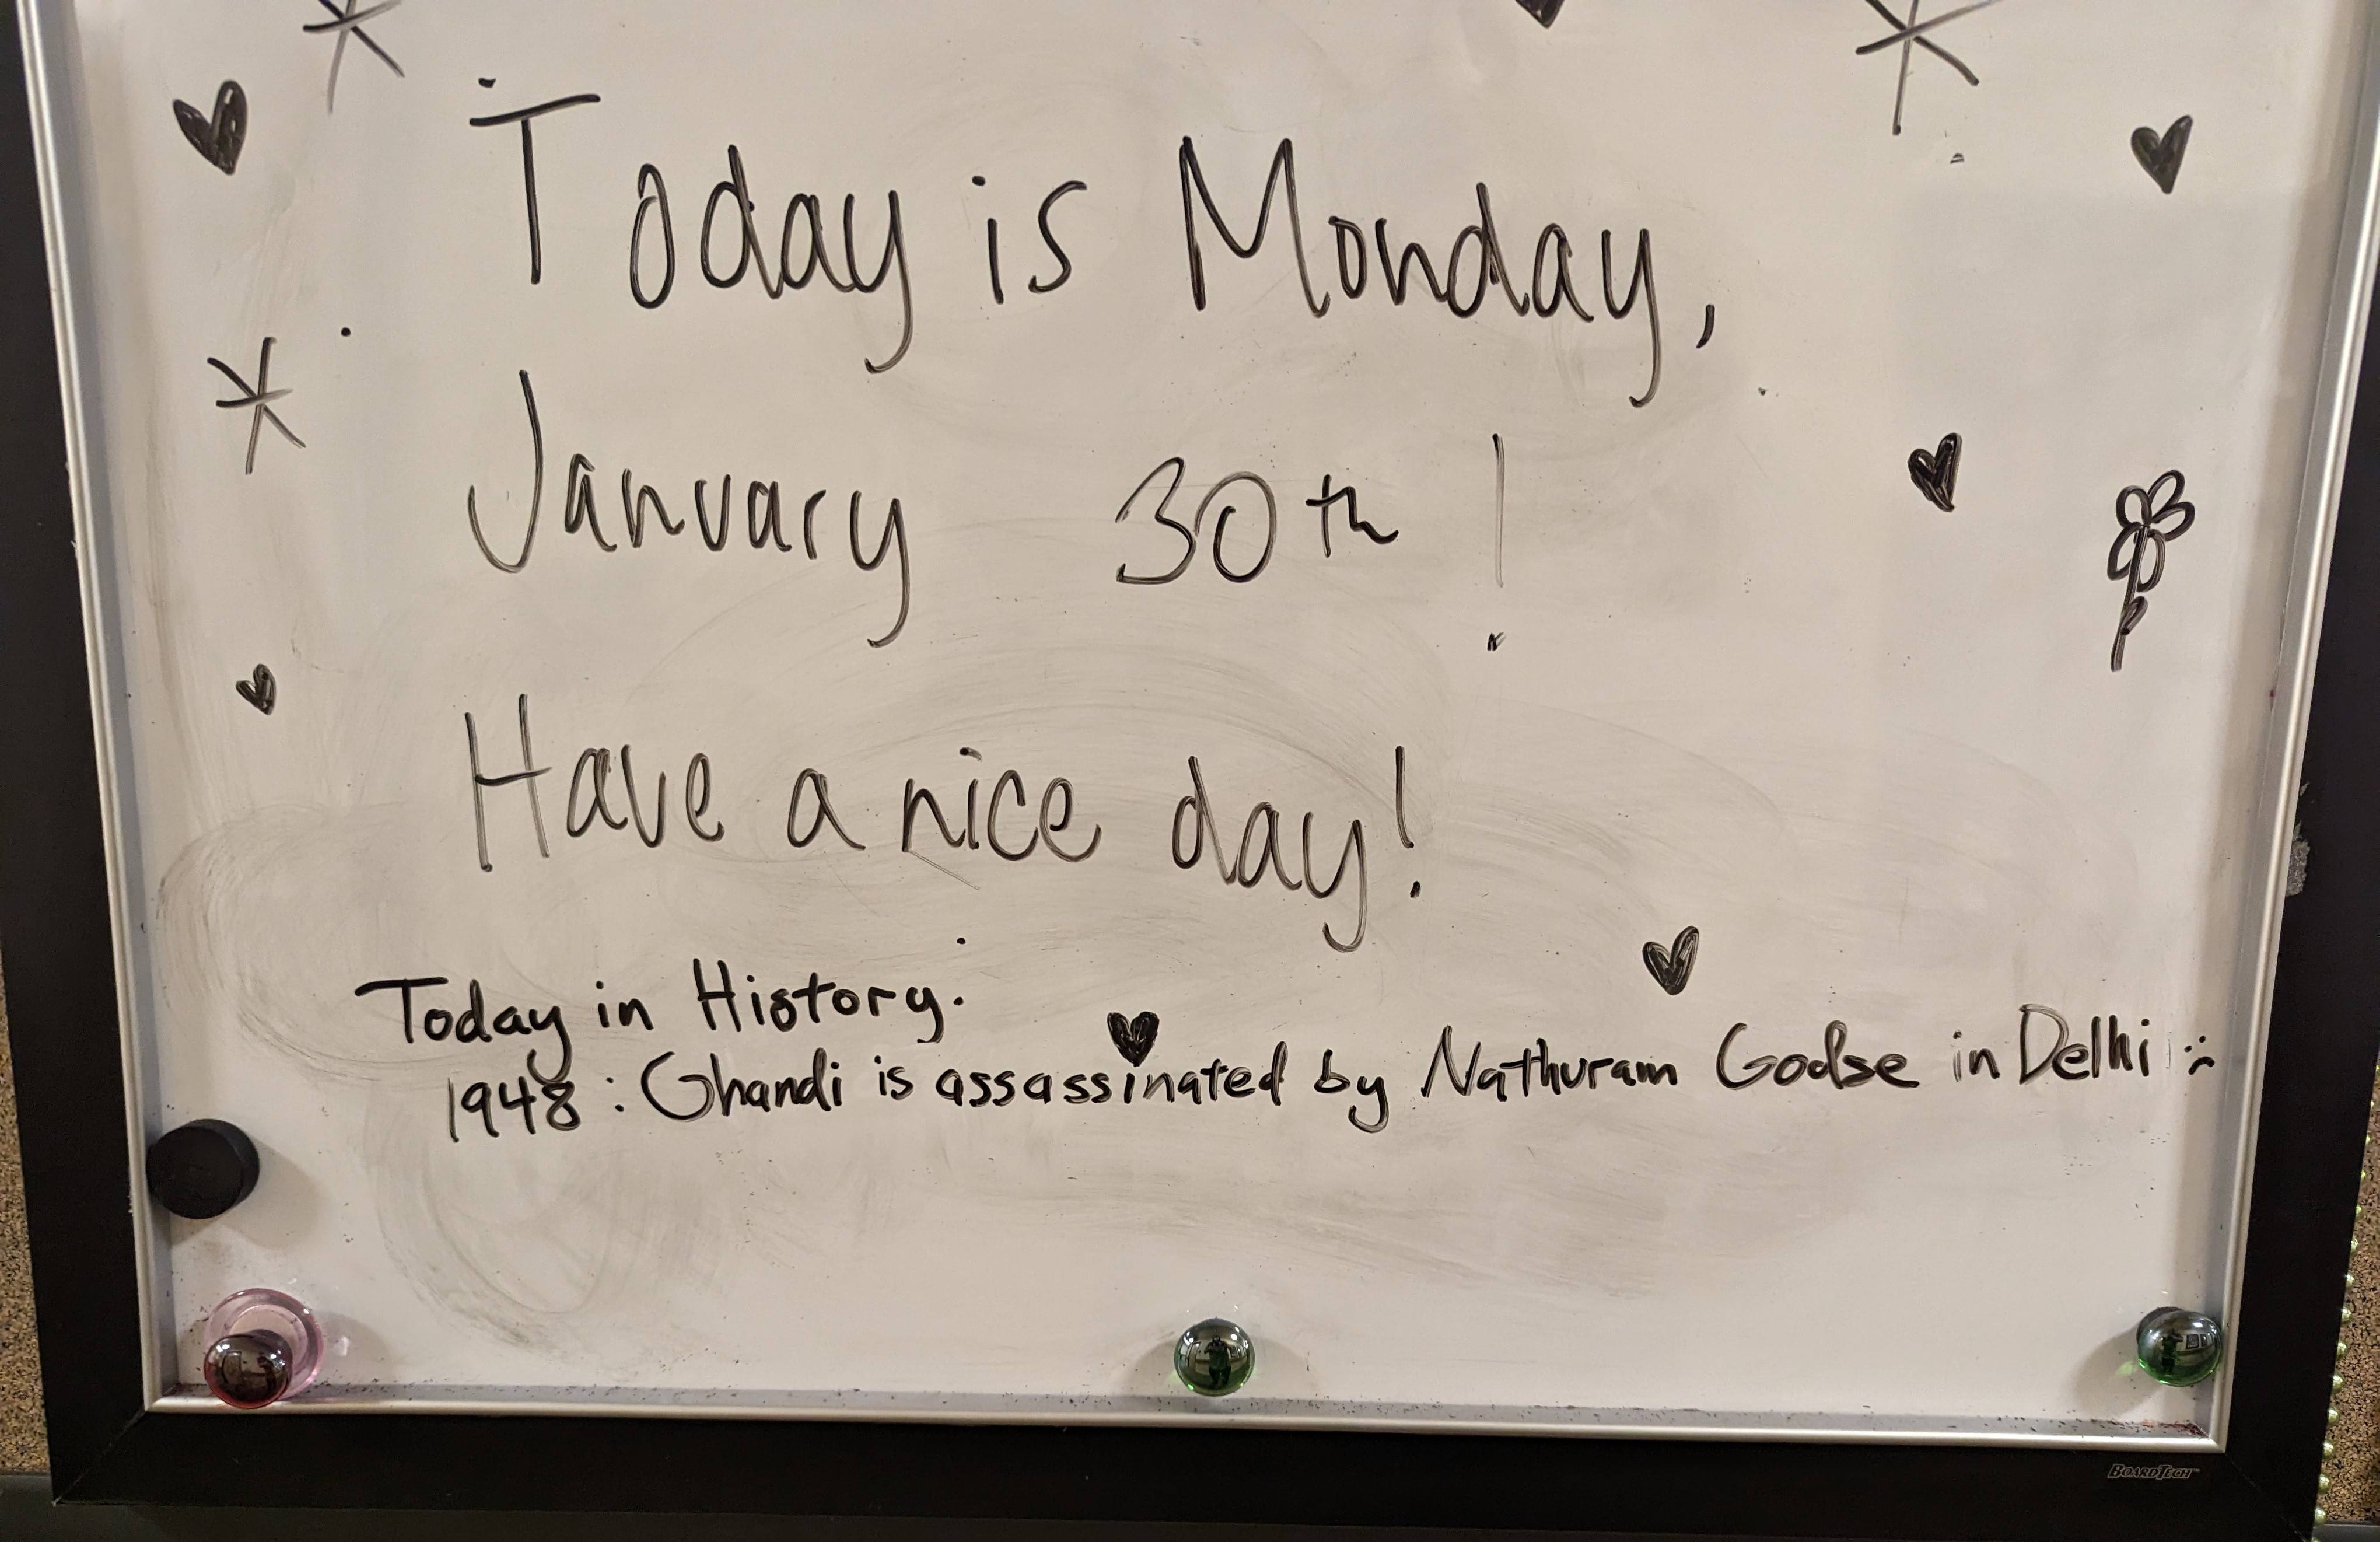 Today is Monday,
January 30th!
Have a nice day!
Today in History.
1948: Ghandi is assassinated by Nathuram Godse in Delhi :(
BOARDTECH™